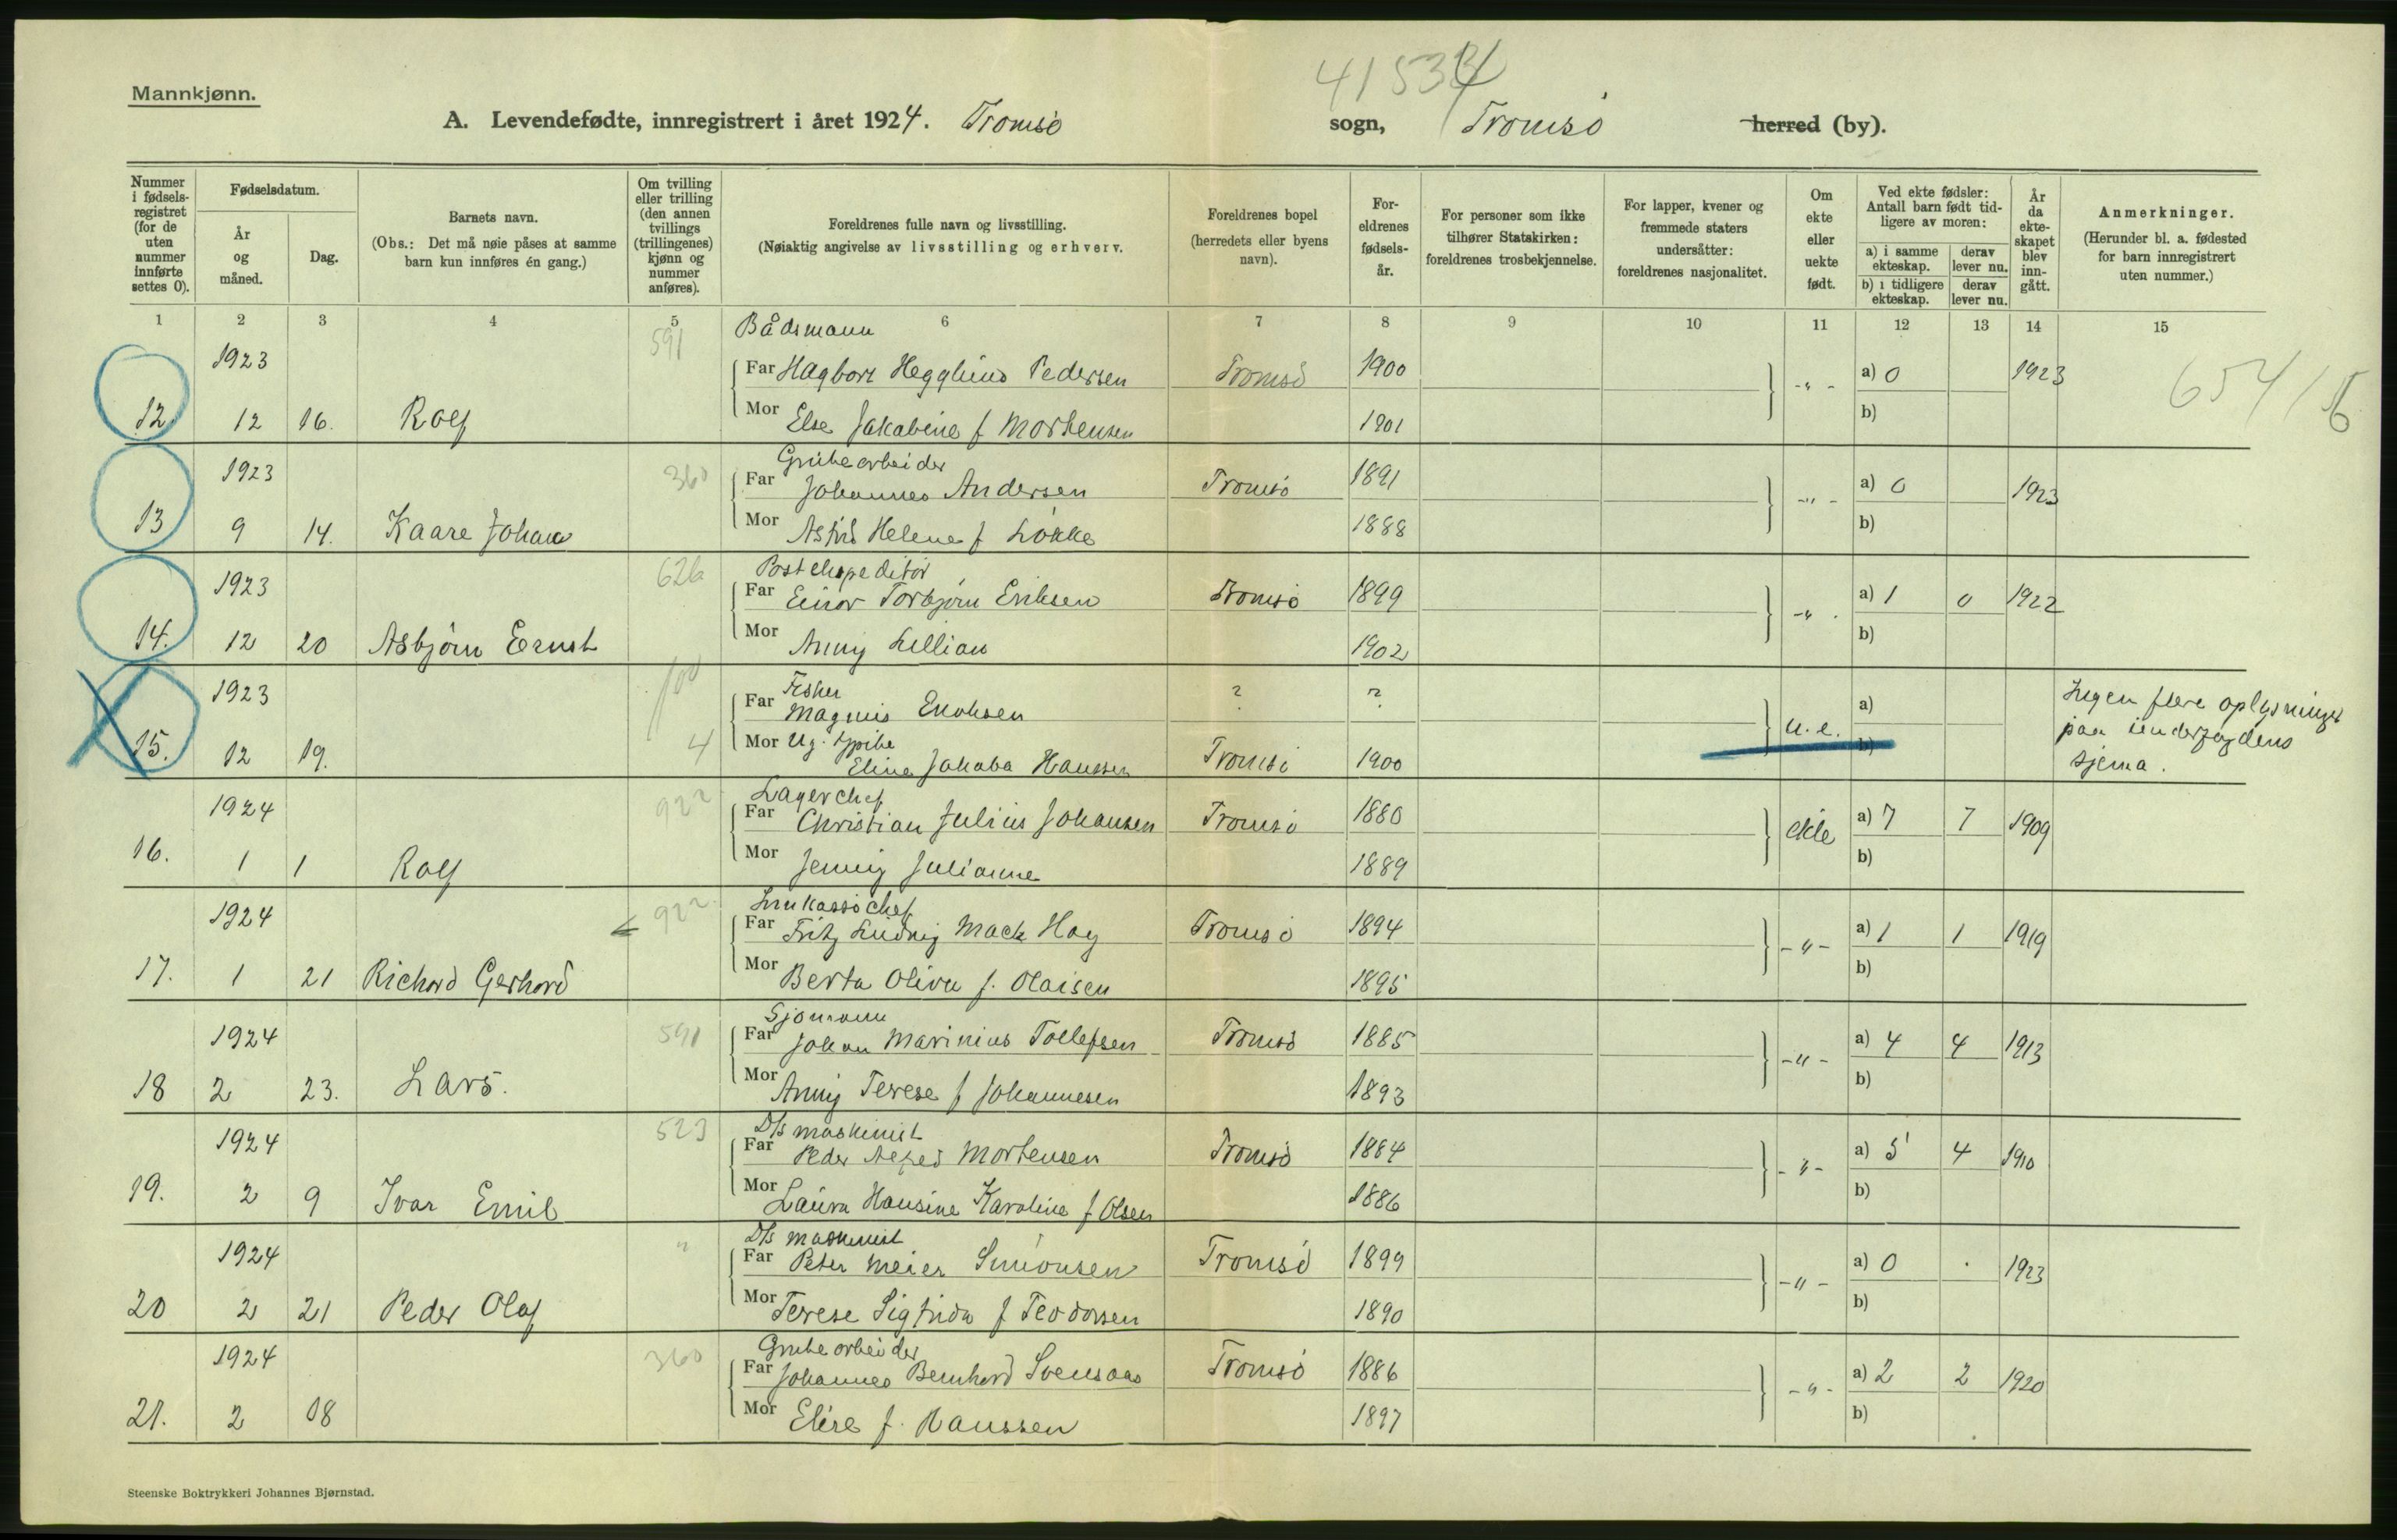 4153 4
Mannkjønn.
A. Levendefødte, innregistrert i året 1924. Tromsø sogn, Tromsø herred (by).
Nummer i fødselsregistret (for de uten nummer innførte settes 0).
Fødselsdatum.
År og måned.
Dag.
Barnets navn.
(Obs.: Det må nøie påses at samme barn kun innføres én gang.)
Om tvilling eller trilling (den annen tvillings (trillingenes) kjønn og nummer anføres).
Foreldrenes fulle navn og livsstilling.
(Nøiaktig angivelse av livsstilling og erhverv.
Foreldrenes bopel (herredets eller byens navn).
Foreldrenes fødselsår.
For personer som ikke tilhører Statskirken: foreldrenes trosbekjennelse.
For lapper, kvener og fremmede staters undersåtter: foreldrenes nasjonalitet.
Om ekte eller uekte født.
Ved ekte fødsler: Antall barn født tidligere av moren:
a) i samme ekteskap.
derav lever nu.
b) i tidligere ekteskap.
derav lever nu.
År da ekteskapet blev inngått.
Anmerkninger.
(Herunder bl. a. fødested for barn innregistrert uten nummer.)
1 2 3 4 5 6 7 8 9 10 11 12 13 14 15
591 Bådsmann
1923 Far Hagbart Hegglund Pedersen Tromsø 1900 -"- a) 0 1923
12 12 16. Rolf Mor Else Jakobine f Mortensen 1901 b)
6541 6
360 Grubearbeider
1923 Far Johannes Andersen Tromsø 1891 -"- a) 0 1923
13 9 14. Kaare Johan Mor Astrid Helene f Løkke 1888 b)
626 Postekspeditør
1923 Far Einar Torbjørn Eriksen Tromsø 1899 -"- a) 1 0 1922
14. 12 20 Asbjørn Ernst Mor Anny Lillian 1902 b)
100 Fisker
1923 Far Magnus Enoksen ? ? u.e. a) Ingen flere oplysninger
4 Mor Ug. pike b) paa
15. 12 19. Eline Jakoba Hanssen Tromsø 1900 sjema.
922 Lagerchef
1924 Far Christian Julius Johansen Tromsø 1880 ekte a) 7 7 1909
16. 1 1 Rolf Mor Jenny Julianne 1889 b)
922 Innkassochef
1924 Far Fritz Ludvig Mack Hag Tromsø 1894 -"- a) 1 1 1919
17. 1 21 Richard Gerhard Mor Berta Oliva f. Olaisen 1895 b)
591 Sjømann
1924 Far Johan Marinius Tollefsen Tromsø 1885 -"- a) 4 4 1913
18 2 23. Lars. Mor Anny Terese f Johannesen 1893 b)
523 D/s maskinist
1924 Far Peder Alfred Mortensen Tromsø 1884 -"- a) 5 4 1910
19. 2 9 Ivar Emil Mor Laura Hansine Karoline f Olsen 1886 b)
" D/s maskinist
1924 Far Peter Meier Simonsen Tromsø 1899 -"- a) 0 . 1923
20 2 21 Peder Olaf Mor Terese Sigfrida f Teodorsen 1890 b)
360 Grubearbeider
1924 Far Johannes Bernhard Svensaas Tromsø 1886 -"- a) 2 2 1920
21. 2 18 Mor Elise f. Hanssen 1897 b)
Steenske Boktrykkeri Johannes Bjørnstad.